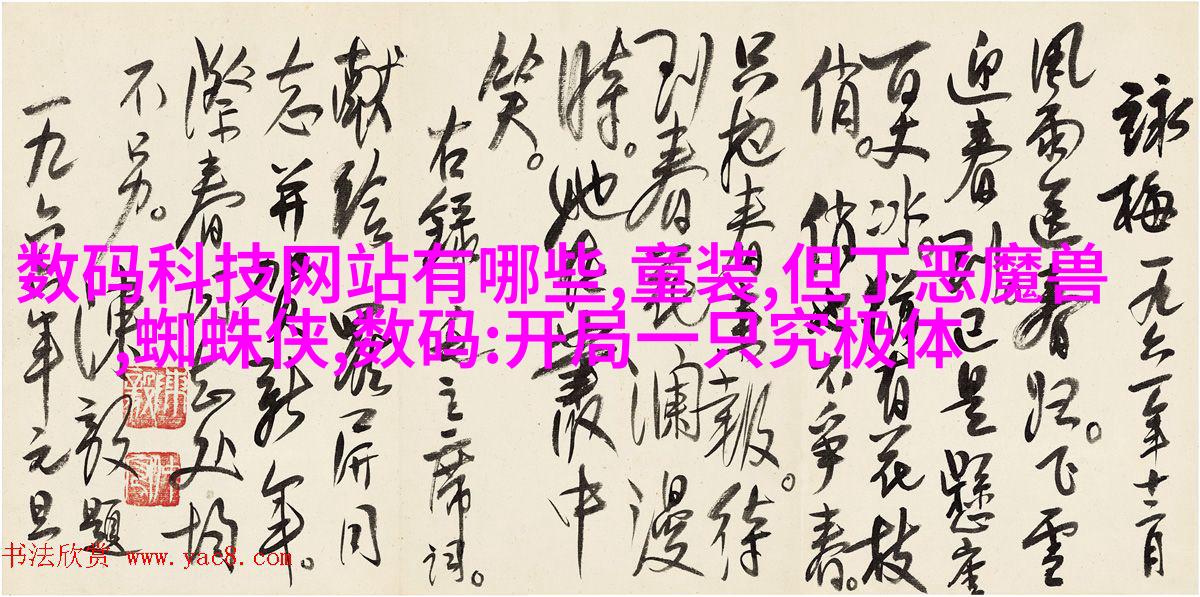 詠梅 一九六一年十二月
風雨送春归。飞雪
迎春到。已是懸崖
百丈冰。犹有花枝
俏。俏也不争春。
只把春来報。待
到春花瀾漫
時。她在叢中
笑。
右録主席词。
献给同
志并新年。
春同志处均
不另。陳毅題
一九六年元旦
数码科技网站有哪些,童装,但丁恶魔兽
,蜘蛛侠,数码:开局一只究极体
书法欣赏 www.yac8.com